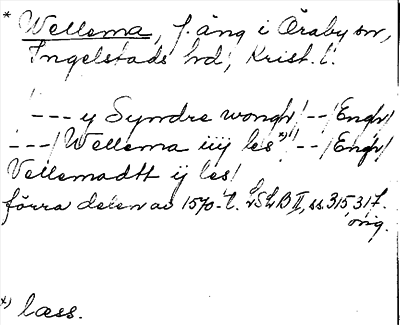 * Wellema, f. äng i Öraby sn,
Ingelstads hd, Krist. l.
"--- y Syndre wongh/--/Engh/
---/Wellema iiij les*)/--/Engh/
Vellemadtt ij les/
förra delen av 1570-t. LSLB II, ss. 315, 317.
orig.
*) læss.